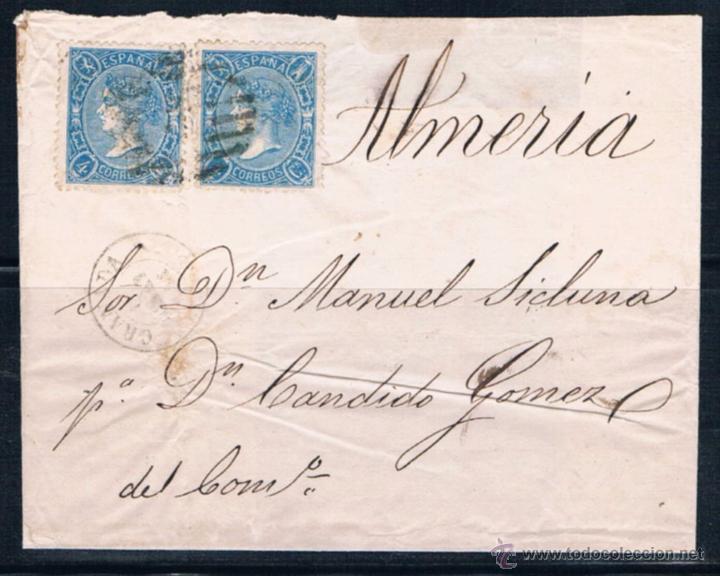 ESPAÑA
4
CORREOS
ESPAÑA
CORREOS
Almeria
GRANADA
Sor. Dn Manuel Sicluna
pa. Dn Candido Gomez
del Como.
www.todocoleccion.net